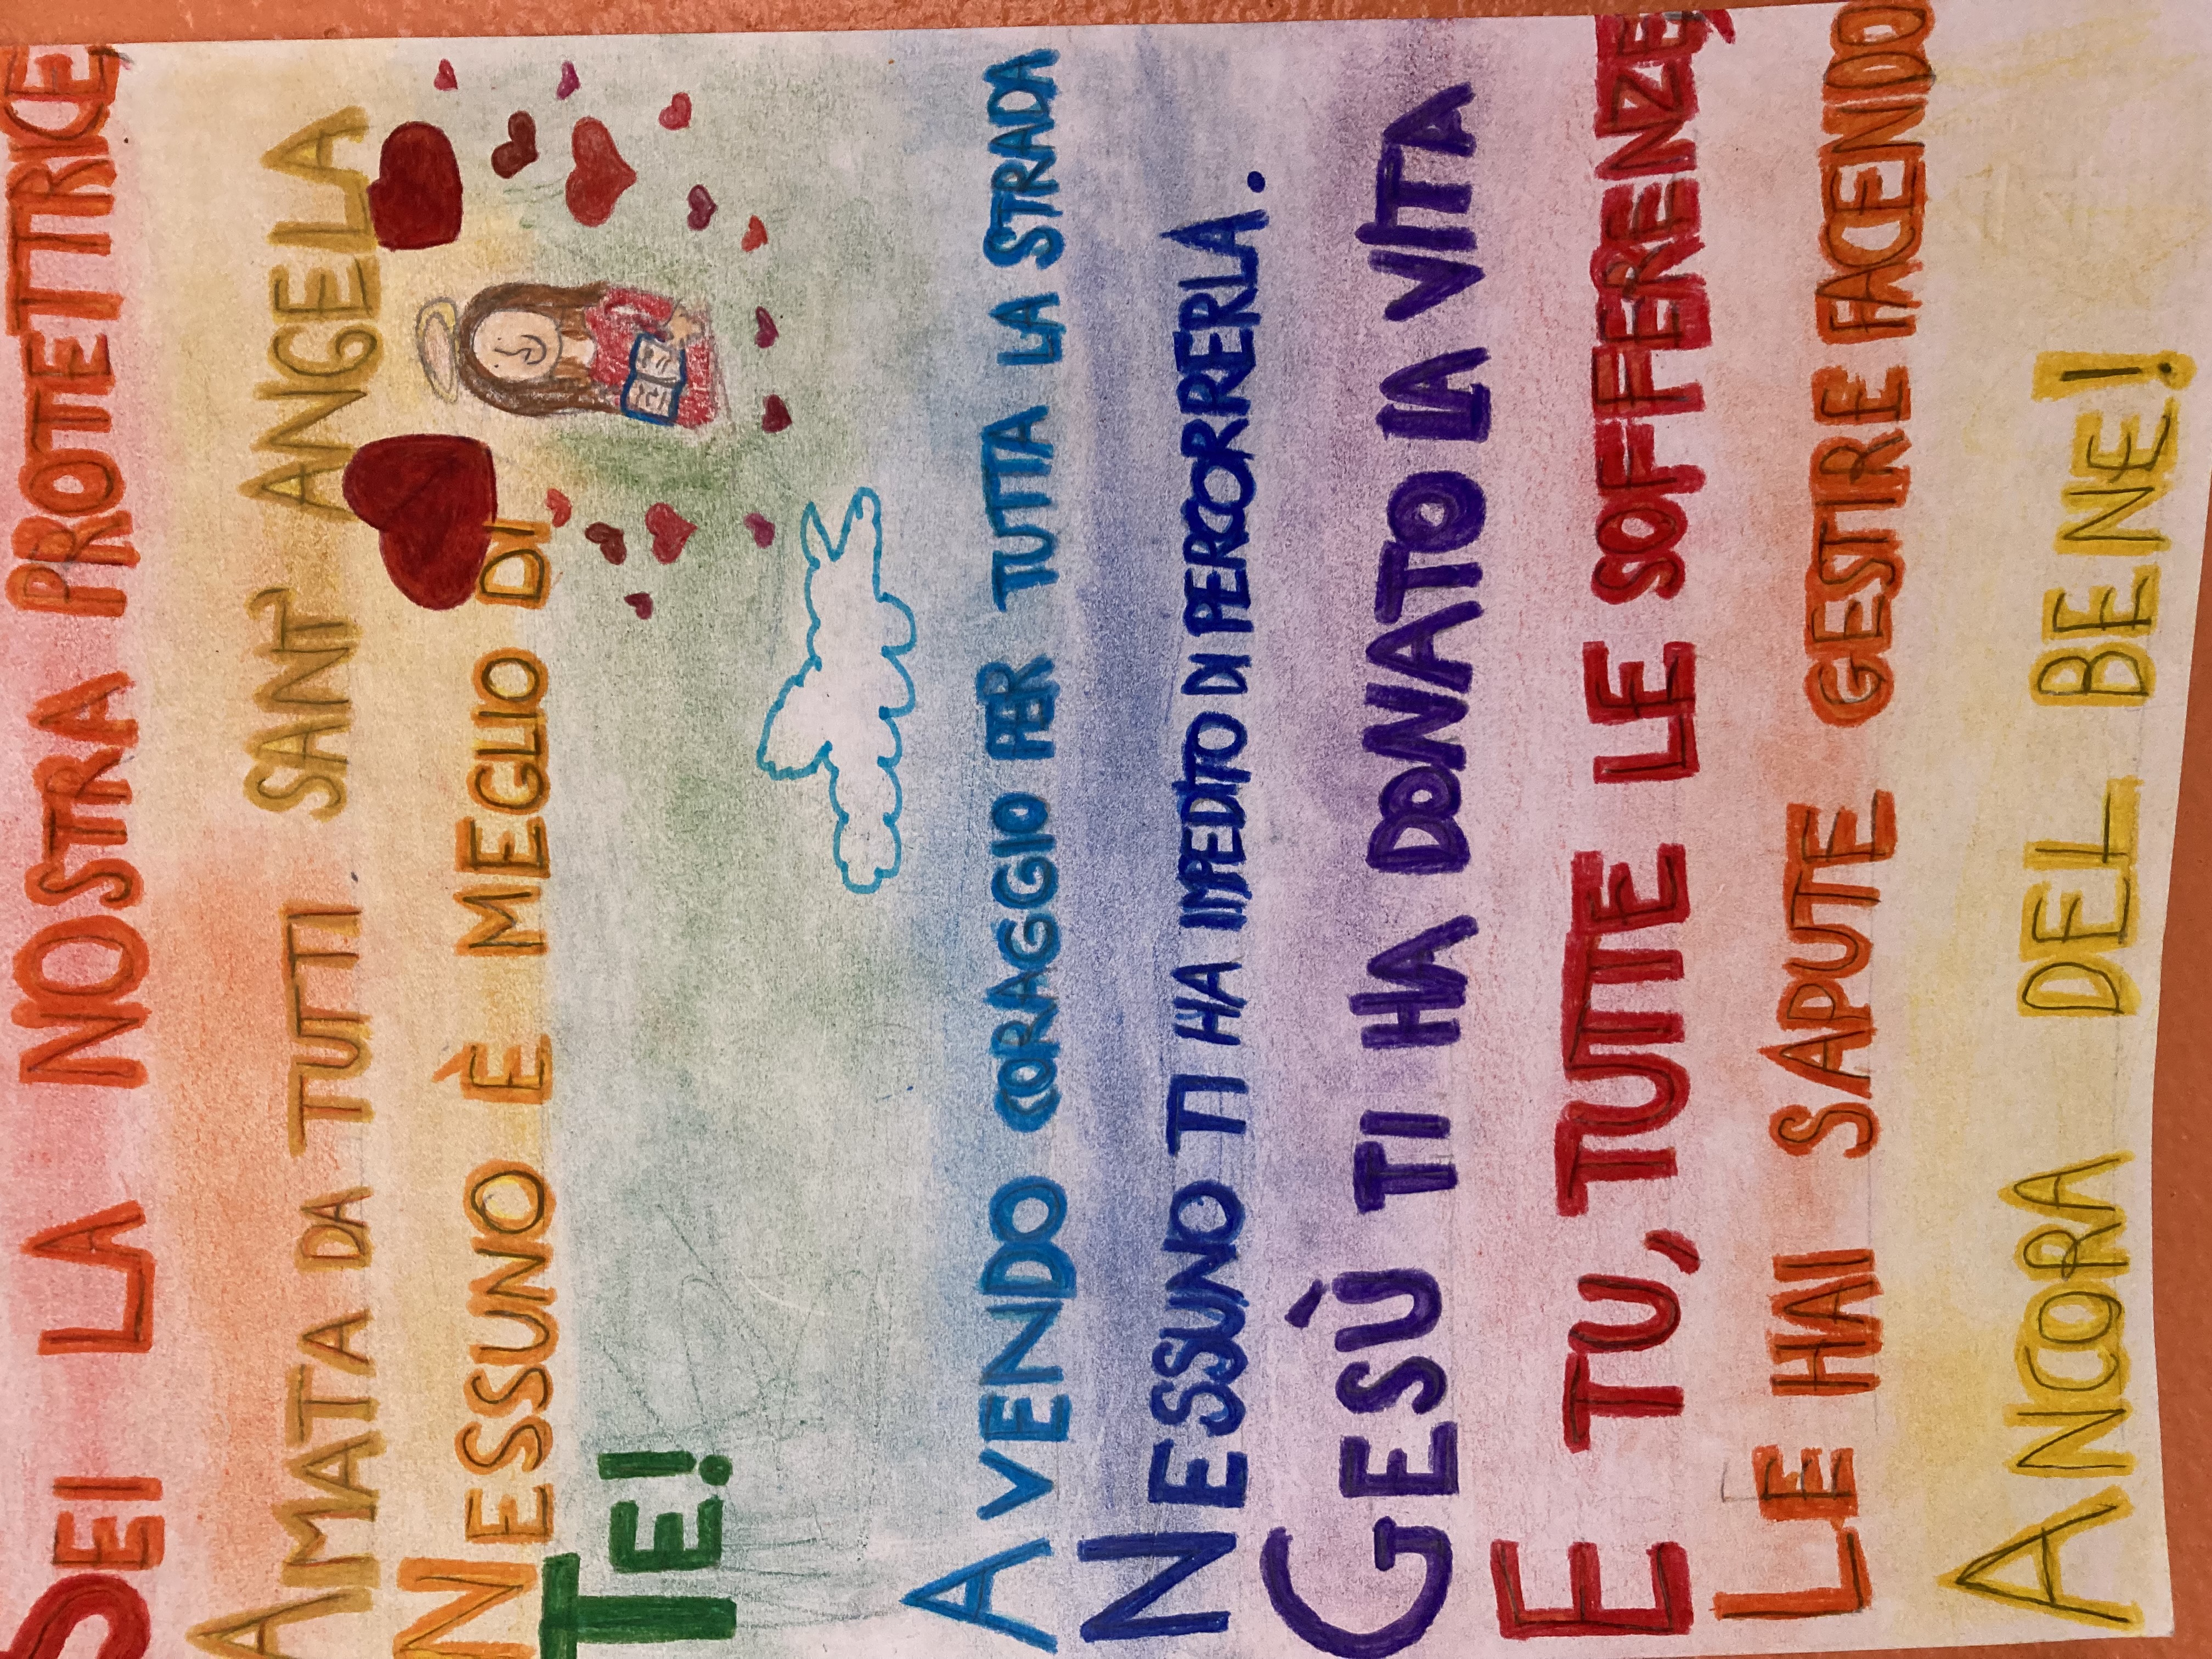 SEI LA NOSTRA PROTETTRICE,
AMATA DA TUTTI SANT' ANGELA
NESSUNO È MEGLIO DI
TE!
AVENDO CORAGGIO PER TUTTA LA STRADA
NESSUNO TI HA IMPEDITO DI PERCORRERLA.
GESÙ TI HA DONATO LA VITA
E TU, TUTTE LE SOFFERENZE,
LE HAI SAPUTE GESTIRE FACENDO
ANCORA DEL BENE!